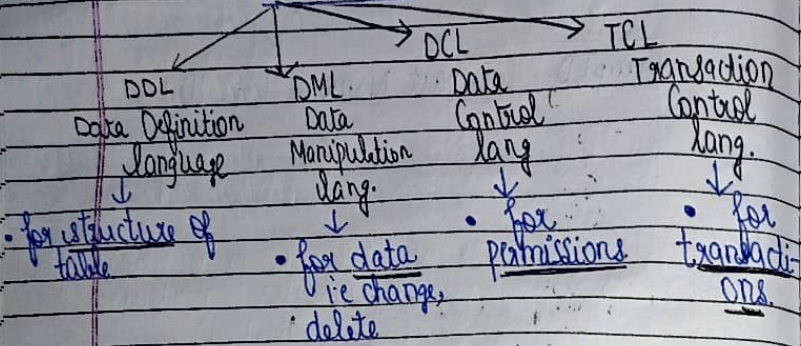 DDL
Data Definition
language
↓
• for structure of
table
DML
Data
Manipulation
lang.
↓
• for data
i.e change,
delete
DCL
Data
Control
lang
↓
• for
permissions
TCL
Transaction
Control
lang.
↓
• for
transacti-
ons.